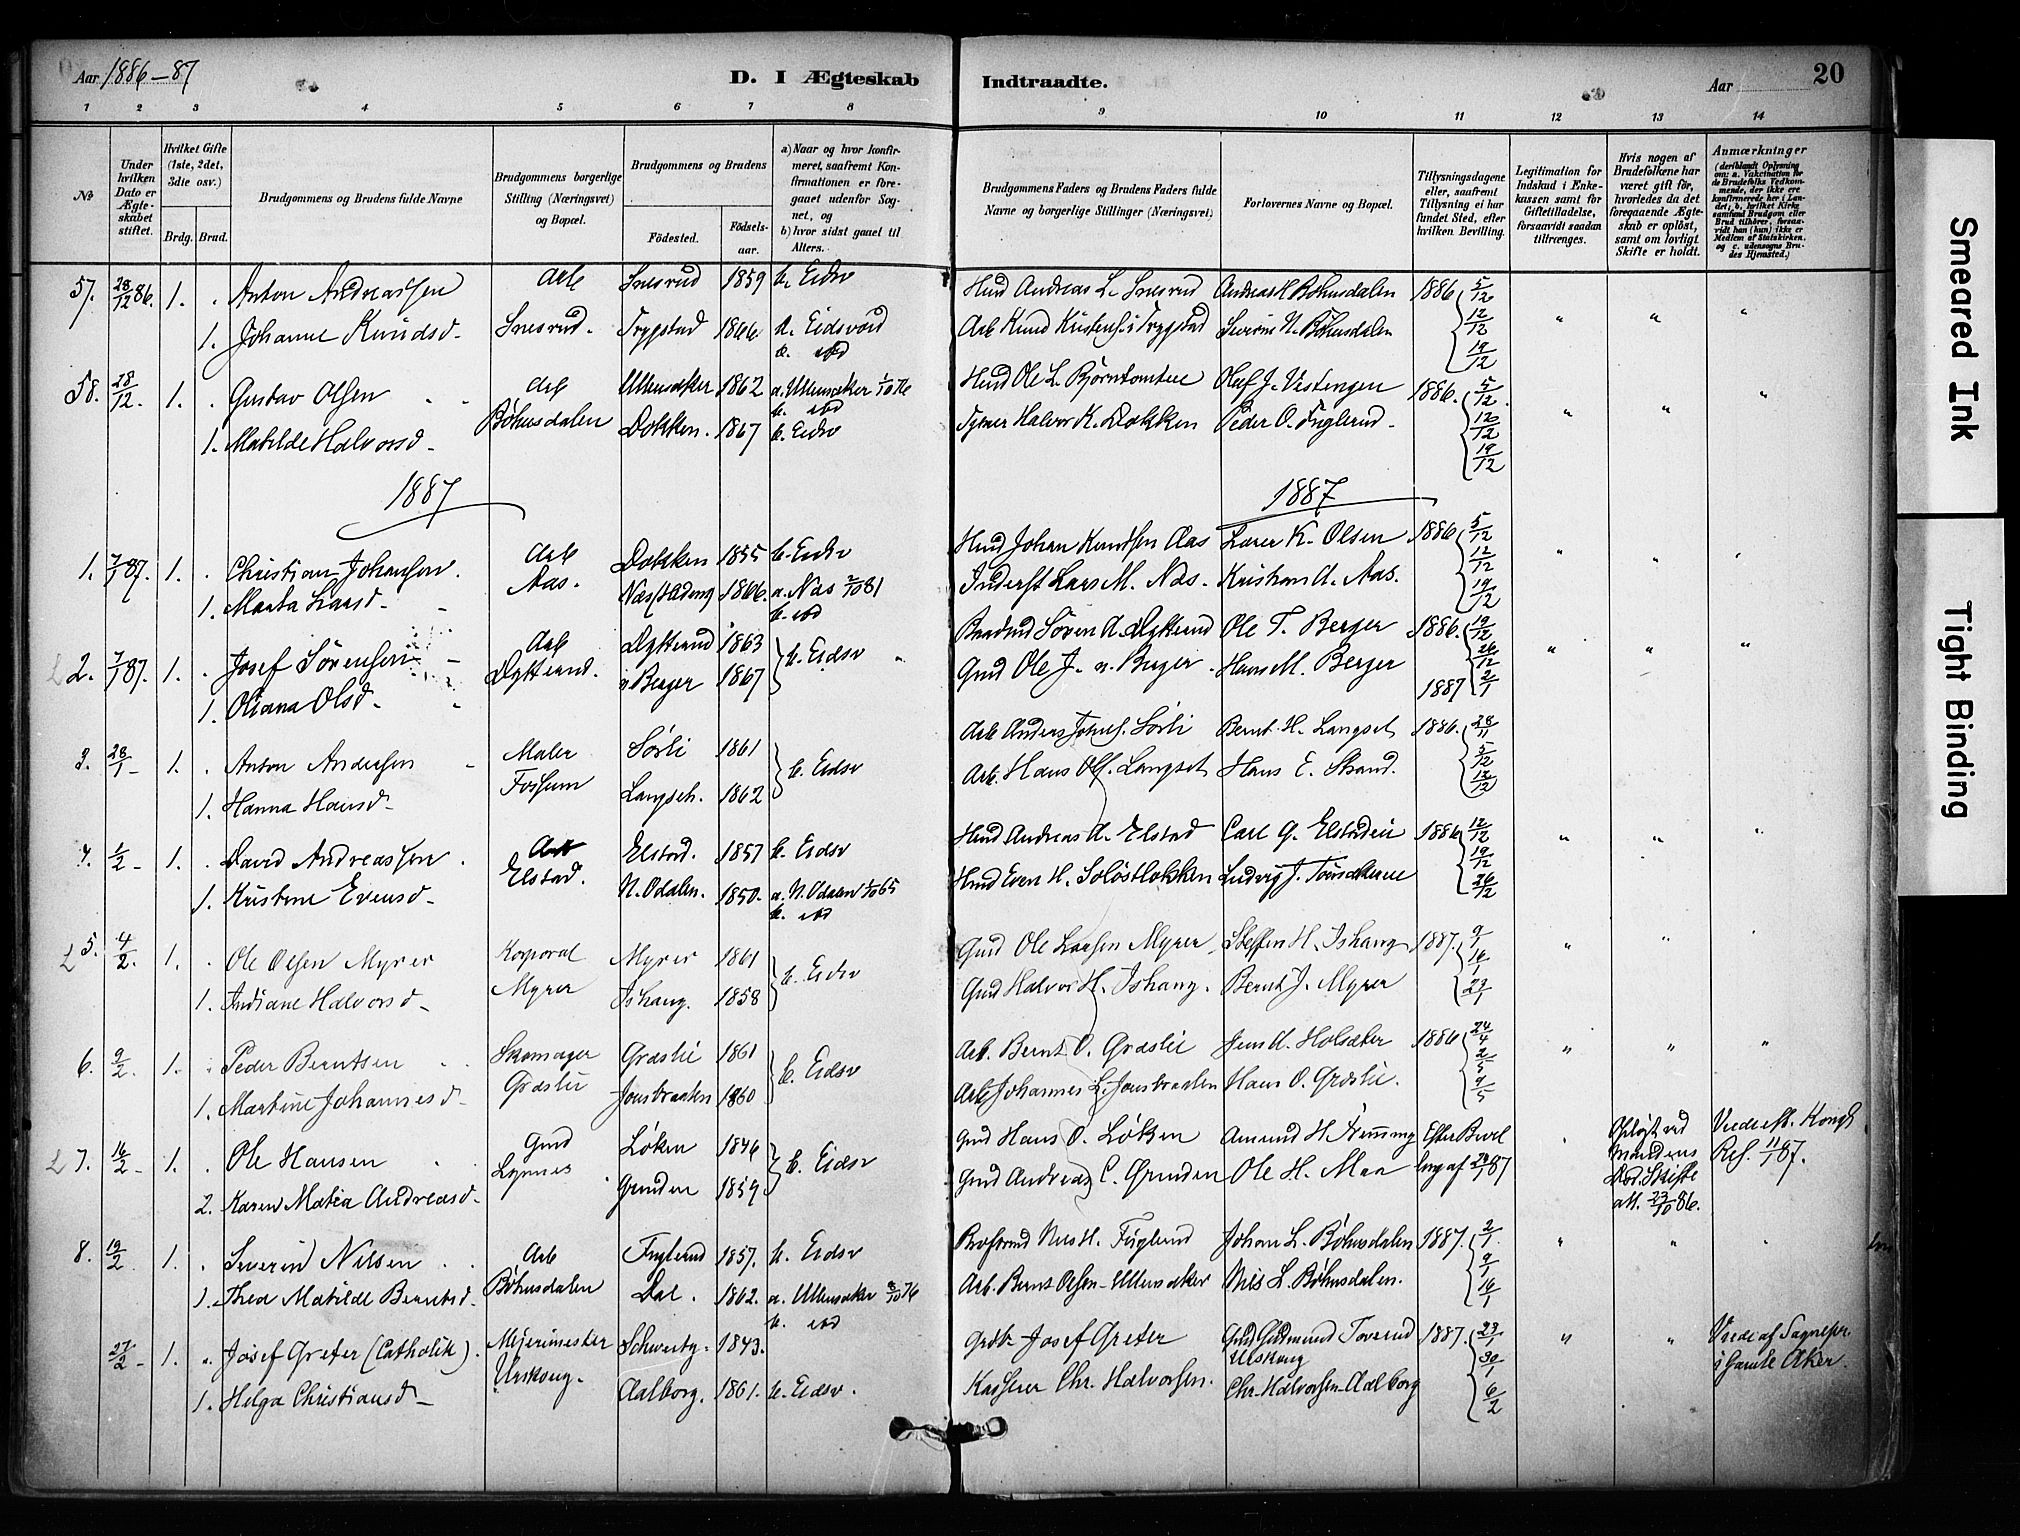 Aar 1886-87
D. I Ægteskab Indtraadte.
Aar
20
1 2 3 4 5 6 7 8 9 10 11 12 13 14
No
Under hvilken Dato er Ægteskabet stiftet.
Hvilket Gifte (1ste, 2det, 3die osv.)
Brdg. Brud.
Brudgommens og Brudens fulde Navne
Brudgommens borgerlige Stilling (Næringsvei) og Bopæl.
Brudgommens og Brudens
Fødested. Fødselsaar.
a) Naar og hvor konfirmeret, saafremt Konfirmationen er foregaaet udenfor Sognet, og
b) hvor sidst gaaet til Alters.
Brudgommens Faders og Brudens Faders fulde Navne og borgerlige Stillinger (Næringsvei)
Forlovernes Navne og Bopæl.
Tillysningsdagene eller, saafremt Tillysning ei har fundet Sted, efter hvilken Bevilling.
Legitimation for Indskud i Enkekassen samt for Giftetilladelse, forsaavidt saadan tiltrænges.
Hvis nogen af Brudefolkene har været gift før, hvorledes da det foregaaende Ægteskab er opløst, samt om lovligt Skifte er holdt.
Anmærkninger
(deriblandt Oplysning om: a. Vakcination for de Brudefolks Vedkommende, der ikke ere konfirmerede her i Landet; b. hvilket Kirkesamfund Brudgom eller Brud tilhører, forsaavidt han (hun) ikke er Medlem af Statskirken, og c. udensogns Brudes Hjemsted.)
57. 28/12 86. 1. Anton Andreassen Arb Snesrud 1859 b. Eidsv Andreas L. Snesrud Andreas H Bøhnsdalen 1886 5/12
1. Johanne Knudsd. Snesrud. Trygstad 1866. a. Eidsvold Arb Knud Kristens. i Trygstad Severin N. Bøhnsdalen 12/12
b. ibd 19/12
58. 28/12. 1. Gustav Olsen Arb Ullensaker 1862 a. Ullensaker 1/10 76 Ole L. Bjørntomten Oluf J. Vestengen 1886. 5/12
b. ibd
1. Matilde Halvorsd. Bøhnsdalen Dokken. 1867 b. Eidsv Halvor K. Dokken Peder O. Fuglerud. 12/12
19/12
1887 1887
1. 7/1 87. 1. Christian Johansen. Arb Dokken 1855 b. Eidsv Johan Knutsen Aas Lærer K. Olsen 1886 5/12
1. Marta Larsd. Aas. 1866. a. Næs 2/10 81 Inderst Lars M. Næs. Kristian A. Aas. 12/12
b. ibd 19/12
2. 7/1 87. 1. Josef Sørensen Arb Dytterud 1863 b. Eidsv Søren A. Dytterud Ole T. Berger 1886. 19/12
1. Oliana Olsd. Dytterud. Berger 1867 Gmd Ole J. Berger Hans M. Berger 26/12
1887 2/1
3. 28/1 1. Anton Andersen Maler Sørli 1861 b. Eidsv Arb Anders Johns. Sørli Bernt H. Langset 1886. 28/11
1. Hanna Hansd. Fossum Langseth. 1862 Arb. Hans Ols. Langset Hans E. Strand. 5/12
12/12
4. 1/2 1. David Andreassen. Arb Elstad. 1857 b. Eidsv Andreas A. Elstad Carl G. Elstadeie 1886 12/12
1. Kristine Evensd. Elstad. N. Odalen. 1850. a. N. Odalen 1/10 65 Even H. Soløstlokken Ludvig J. 19/12
b. ibd 26/12
5. 4/2. 1. Ole Olsen Myrer Korporal Myrer 1861 b. Eidsv Gmd Ole Larsen Myrer Steffen H. Ishaug 1887. 9/1
1. Indiane Halvorsd. Myrer Ishaug. 1858 Gmd Halvor H. Ishaug. Bernt J. Myrer 16/1
23/1
6. 9/2. 1. Peder Berntsen Skomager Græslie 1861 b. Eidsv Arb. Bernt O. Græslie Jens A. Holsæter 1886 24/4
1. Martine Johannesd. Græslie Jonsbraaten 1860 Arb Johannes L. Jonsbraaten Hans O. Græslie. 2/5
9/5
7. 16/2 1. Ole Hansen Gmd Løken 1846 b. Eidsv Gmd Hans O. Løken Amund H. Efter Bevil Opløst ved Mandens Død. Skifte att. 23/10 86. Kongl Res. 11/1 87.
2. Karen Matea Andreasd. Lynnes Grinden 1859 Gmd Andreas C. Grinden Ole H. Maa ling af 24/1 87
8. 19/2 1. Severin Nilsen Arb Fuglerud 1857. b. Eidsv Nils H. Fuglerud Johan L. Bøhnsdalen 1887. 2/1.
1. Thea Matilde Berntsd. Bøhnsdalen Dal. 1862. a. Ullensaker 8/10 76 Arb. Bernt Olsen Ullensaker Nils L. Bøhnsdalen. 9/1
b. ibd 16/1
27/2 1. Josef Greter (Catholik). Mejerimester 1843. Josef Greter Gmd Gudmund Toverud Urskoug 1887. 23/1 af Sognepr. i Gamle Aker.
1. Helga Christiansd. Urskoug. Aalborg. 1861. b. Eidsv. Kasserer Chr. Halvorsen. Chr. Halvorsen Aalborg 30/1
6/2
Smeared Ink
Tight Binding